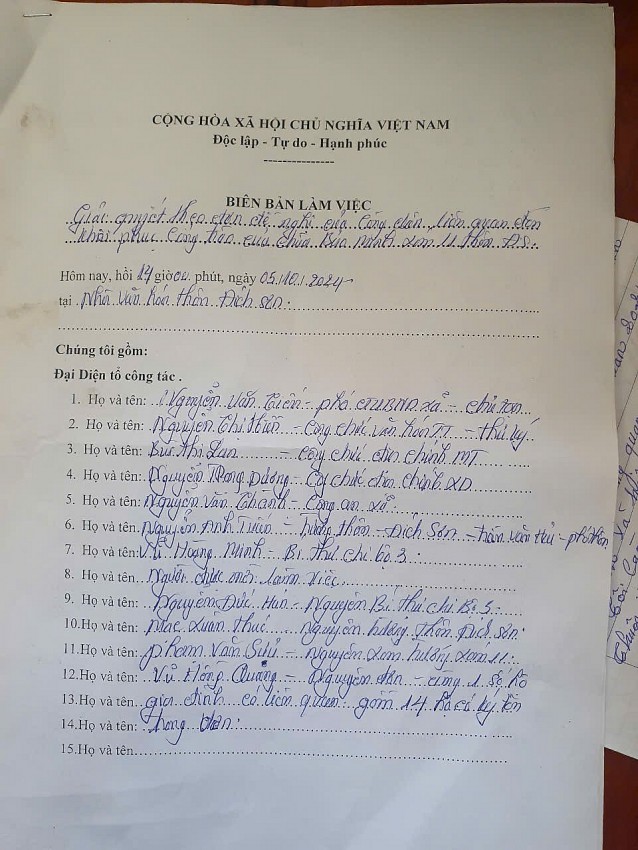 CỘNG HÒA XÃ HỘI CHỦ NGHĨA VIỆT NAM
Độc lập - Tự do - Hạnh phúc
BIÊN BẢN LÀM VIỆC
Giải quyết theo đơn đề nghị của công dân liên quan đến
khôi phục cổng của chùa
Hôm nay, hồi 14 giờ 00 phút, ngày 05/10/2024
tại Nhà văn hóa thôn Đích Sơn
Chúng tôi gồm:
Đại Diện tổ công tác .
1. Họ và tên: Nguyễn Văn Tiến - phó CTUBND xã - chủ tọa
2. Họ và tên: Nguyễn Thị Hiền - Công chức văn hóa TT - thư ký
3. Họ và tên: Bùi Thị Lan - công chức địa chính MT
4. Họ và tên: Nguyễn Trọng Dương - chức địa chính XD
5. Họ và tên: Nguyễn Văn Thành - Công an xã
6. Họ và tên: Nguyễn Anh Tuấn - Trưởng thôn - Đích Sơn - trần văn - phó thôn
7. Họ và tên: Vũ Hoàng Minh - Bí thư chi bộ 3
8. Họ và tên: Người được mời làm việc
9. Họ và tên: Nguyễn Đức - Nguyên Bí thư chi Bộ 3
10.Họ và tên: Mạc Xuân Thức Nguyên trưởng thôn Đích Sơn
11.Họ và tên: Phạm Văn - Nguyên trưởng
12.Họ và tên: Vũ Hồng - Nguyên - cùng 1 số hộ
13.Họ và tên: gia đình có liên quan gồm 14 hộ có ký tên
14.Họ và tên: trong đơn
15.Họ và tên: